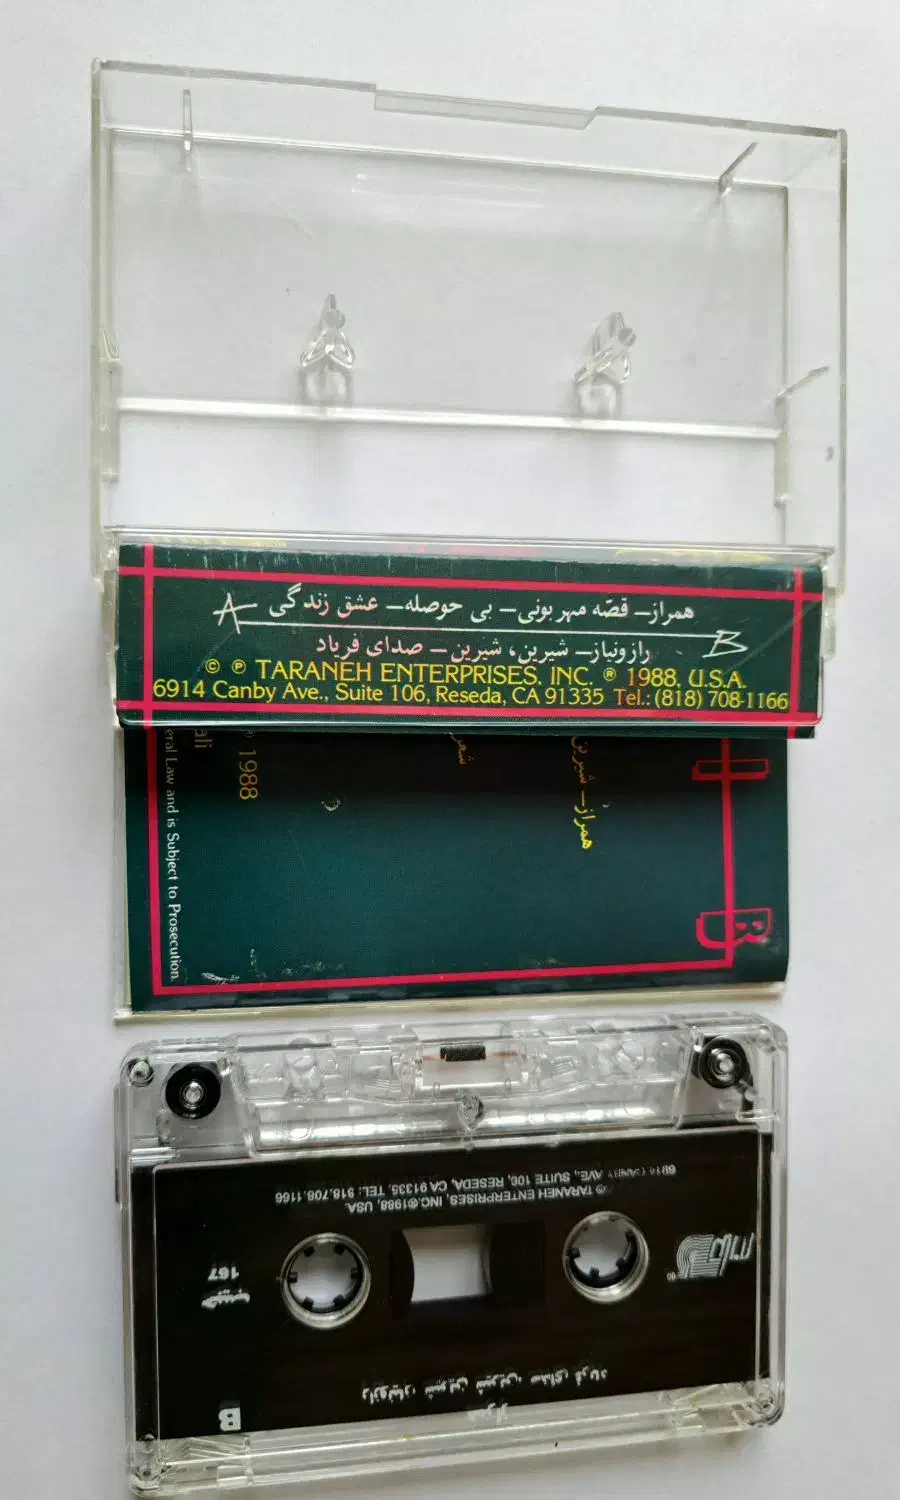 A همراز– قصّه مهربونی– بی حوصله– عشق زندگی
رازونیاز– شیرین، شیرین– صدای فریاد B
© ℗ TARANEH ENTERPRISES, INC. ® 1988, U.S.A.
6914 Canby Ave., Suite 106, Reseda, CA 91335 Tel.: (818) 708-1166
همراز– شیرین
شعر
1988
ali
eral Law and is Subject to Prosecution.
B
رازونیاز، شیرین شیرین، صدای فریاد
همراز
حبیب
167
℗ TARANEH ENTERPRISES, INC.®1988, USA.
6914 CANBY AVE., SUITE 106, RESEDA, CA 91335. TEL: 818.708.1166